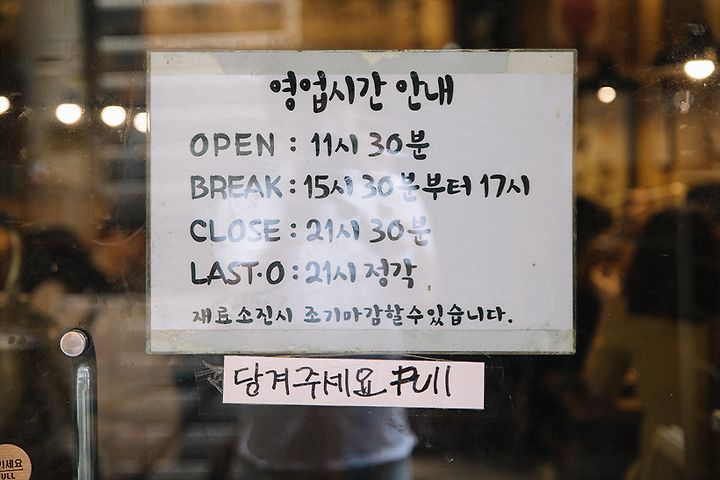 영업시간 안내
OPEN : 11시 30분
BREAK : 15시 30분부터 17시
CLOSE : 21시 30분
LAST·O : 21시 정각
재료소진시 조기마감할수있습니다.
당겨주세요 Pull
세요
ULL